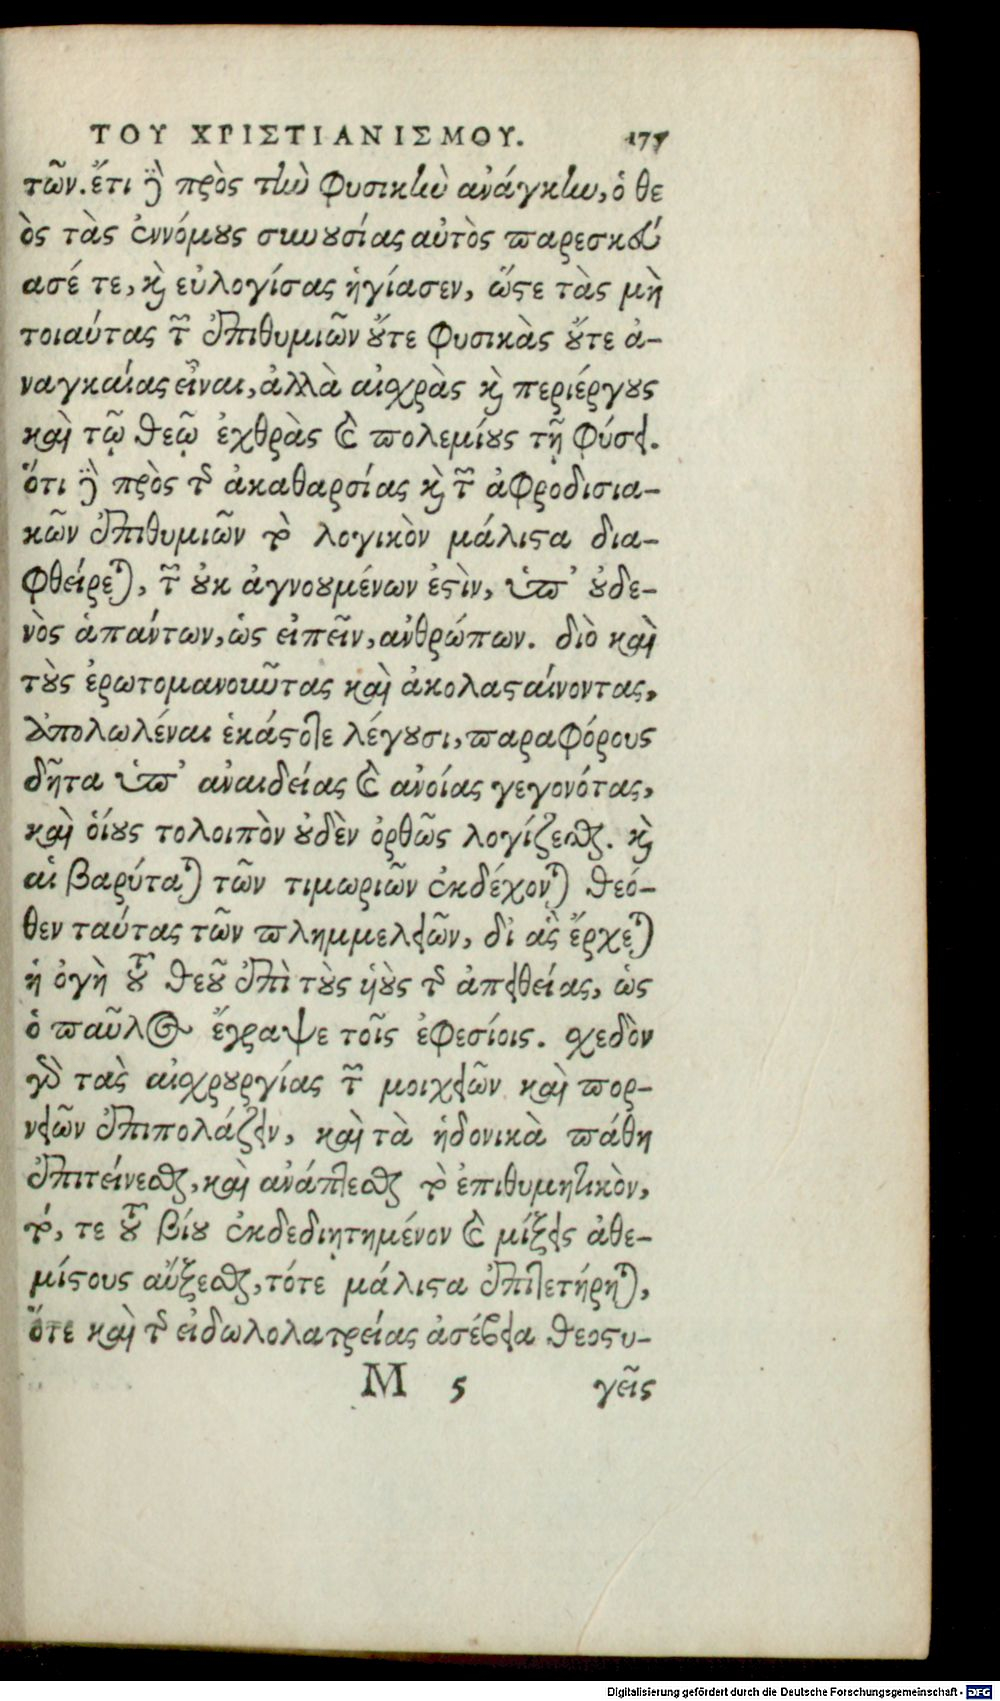 ΤΟΥ ΧΡΙΣΤΙΑΝΙΣΜΟΥ.
τῶν. ἔτι ϳ πρὸς τὴν φυσικὴν ἀνάγκην, ὁ θε
ὸς τὰς ἐννόμȣς συνȣσίας αὐτὸς παρεσκεύ
ασέ τε, ϗ εὐλογίσας ἡγίασεν, ὥςε τὰς μὴ
τοιαύτας τῶν ἐπιθυμιῶν ȣ̓́τε φυσικὰς ȣ̓́τε ἀ-
ναγκαίας εἶναι, ἀλλὰ αἰσχρὰς ϗ περιέργȣς
καὶ τῷ θεῷ ἐχθρὰς καὶ πολεμίȣς τῇ φύσει.
ὅτι ϳ πρὸς τῆς ἀκαθαρσίας ϗ τῶν ἀφροδισια-
κῶν ἐπιθυμιῶν τὸ λογικὸν μάλιςα δια-
φθείρεται, τῶν ȣ̓κ ἀγνουμένων ἐςὶν, ὑπ' ȣ̓δε-
νὸς ἁπάντων, ὡς εἰπεῖν, ἀνθρώπων. διὸ καὶ
τȣ̀ς ἐρωτομανοιῶτας καὶ ἀκολαςαίνοντας,
ἀπολωλέναι ἑκάςοτε λέγȣσι, παραφόρους
δῆτα ὑπ' ἀναιδείας καὶ ἀνοίας γεγονότας,
καὶ ὁίȣς τολοιπὸν ȣ̓δὲν ὀρθῶς λογίζεσθαι. ϗ
αἱ βαρύταται τῶν τιμωριῶν ἐκδέχονται θεό-
θεν ταύτας τῶν πλημμελειῶν, δι ἃς ἔρχεται
ἡ ὀγὴ τȣ͂ θεȣ͂ ἐπὶ τȣ̀ς ὑȣ̀ς τῆς ἀπειθείας, ὡς
ὁ παῦλος ἔγραψε τοῖς ἐφεσίοις. σχεδὸν
γὰρ τὰς αἰσχρȣργίας τῶν μοιχειῶν καὶ πορ-
νειῶν ἐπιπολάζειν, καὶ τὰ ἡδονικὰ πάθη
ἐπιτείνεσθαι, καὶ ἀνάπτεσθαι τὸ ἐπιθυμητικὸν,
τό, τε τȣ͂ βίȣ ἐκδεδιητημένον καὶ μίξεις ἀθε-
μίςους αὔξεσθαι, τότε μάλιςα ἐπιτετήρηται,
ὅτε καὶ τῆς εἰδωλολατρείας ἀσέβεια θεοςυ-
Μ 5 γεῖς
Digitalisierung gefördert durch die Deutsche Forschungsgemeinschaft - DFG